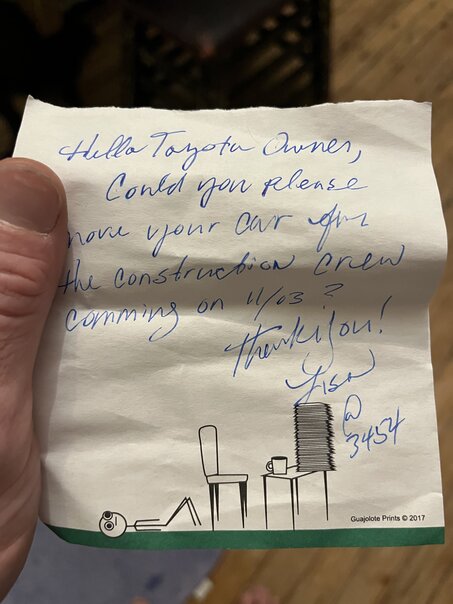 Hello Toyota Owner,
Could you please
move your car for
the construction crew
comming on 11/03 ?
Thank you!
Lisa
@
3454
Guajolote Prints © 2017